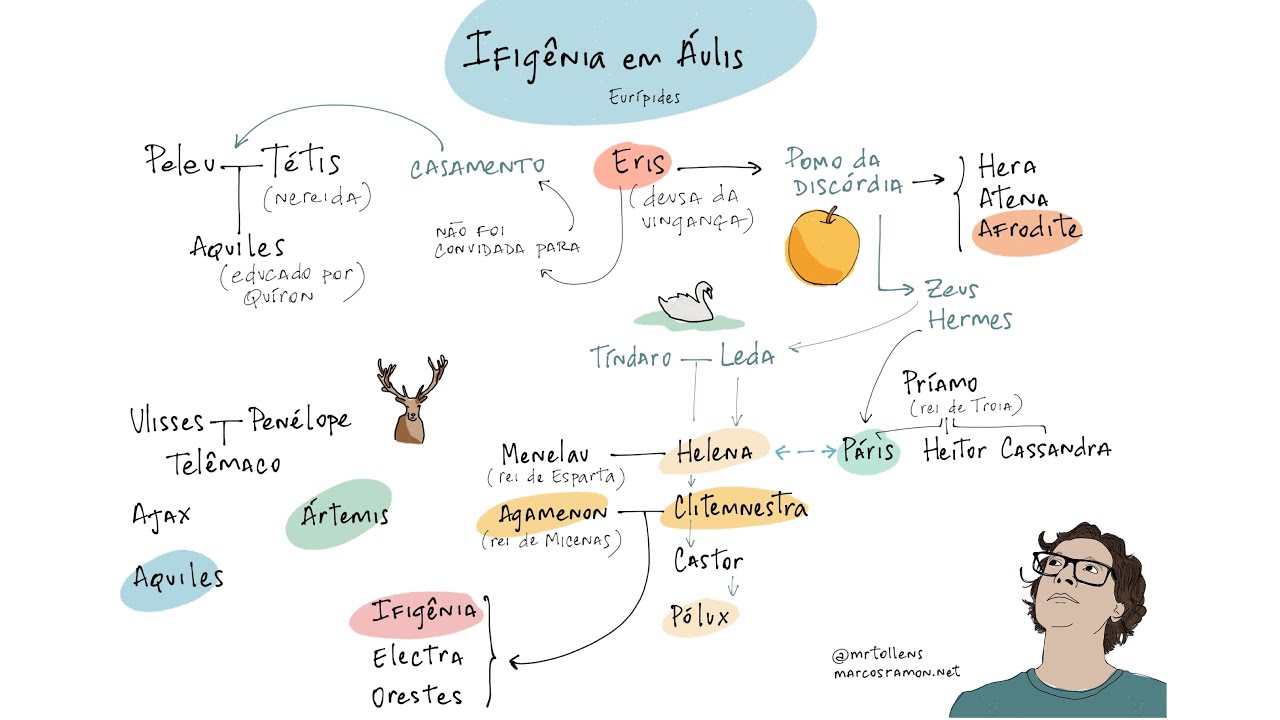 Ifigênia em Áulis
Eurípides
Peleu
Tétis
(nereida)
Aquiles
(educado por
Quíron)
CASAMENTO
NÃO FOI
CONVIDADA PARA
Eris
(deusa da
vingança)
Pomo da
Discórdia
Hera
Atena
Afrodite
Zeus
Hermes
Tíndaro
Leda
Príamo
(rei de Troia)
Páris
Heitor
Cassandra
Ulisses
Penélope
Telêmaco
Ajax
Aquiles
Ártemis
Menelau
(rei de Esparta)
Helena
Agamenon
(rei de Micenas)
Clitemnestra
Castor
Pólux
Ifigênia
Electra
Orestes
@mrtollens
marcosramon.net